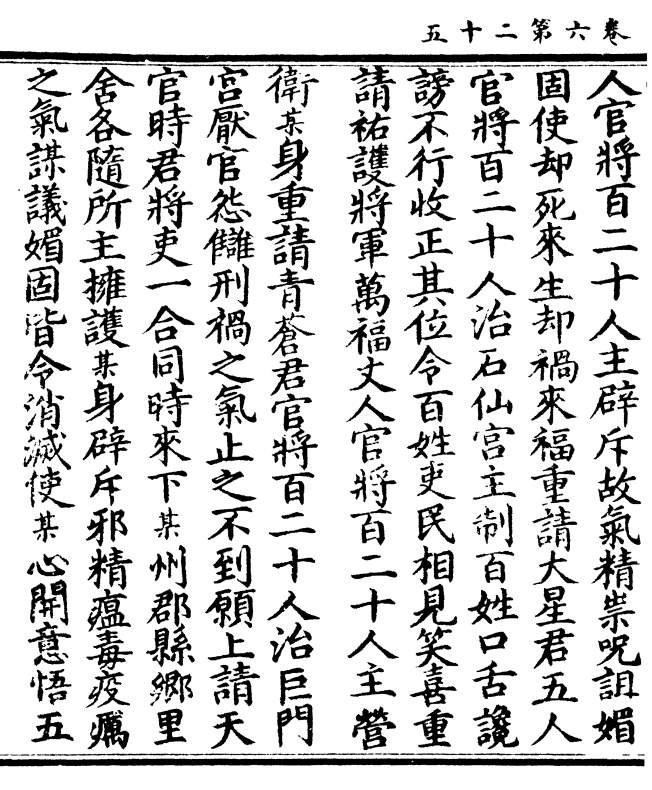 卷六第二十五
人官將百二十人主辟斥故氣精祟呪詛媚
固使却死來生却禍來福重請大星君五人
官將百二十人治石仙宮主制百姓口舌讒
謗不行收正其位令百姓吏民相見笑喜重
請祐護將軍萬福丈人官將百二十人主營
衛某身重請青蒼君官將百二十人治巨門
宮厭官怨讎刑禍之氣止之不到願上請天
官時君將吏一合同時來下某州郡縣鄉里
舍各隨所主擁護某身辟斥邪精瘟毒疫癘
之氣謀議媚固皆令消滅使某心開意悟五